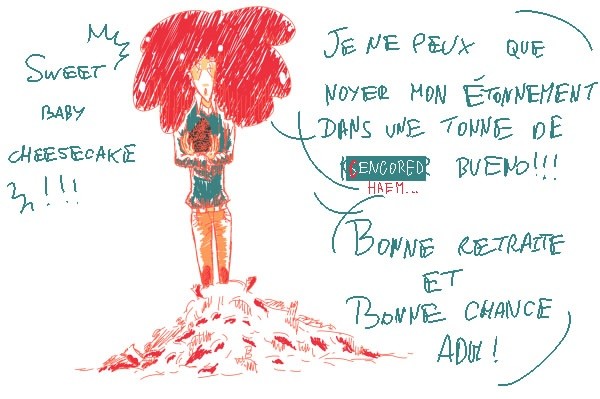 SWEET
BABY
CHEESECAKE
!!!
JE NE PEUX QUE
NOYER MON ÉTONNEMENT
DANS UNE TONNE DE
CENSORED BUENO!!!
HAEM...
BONNE RETRAITE
ET
BONNE CHANCE
ADW!